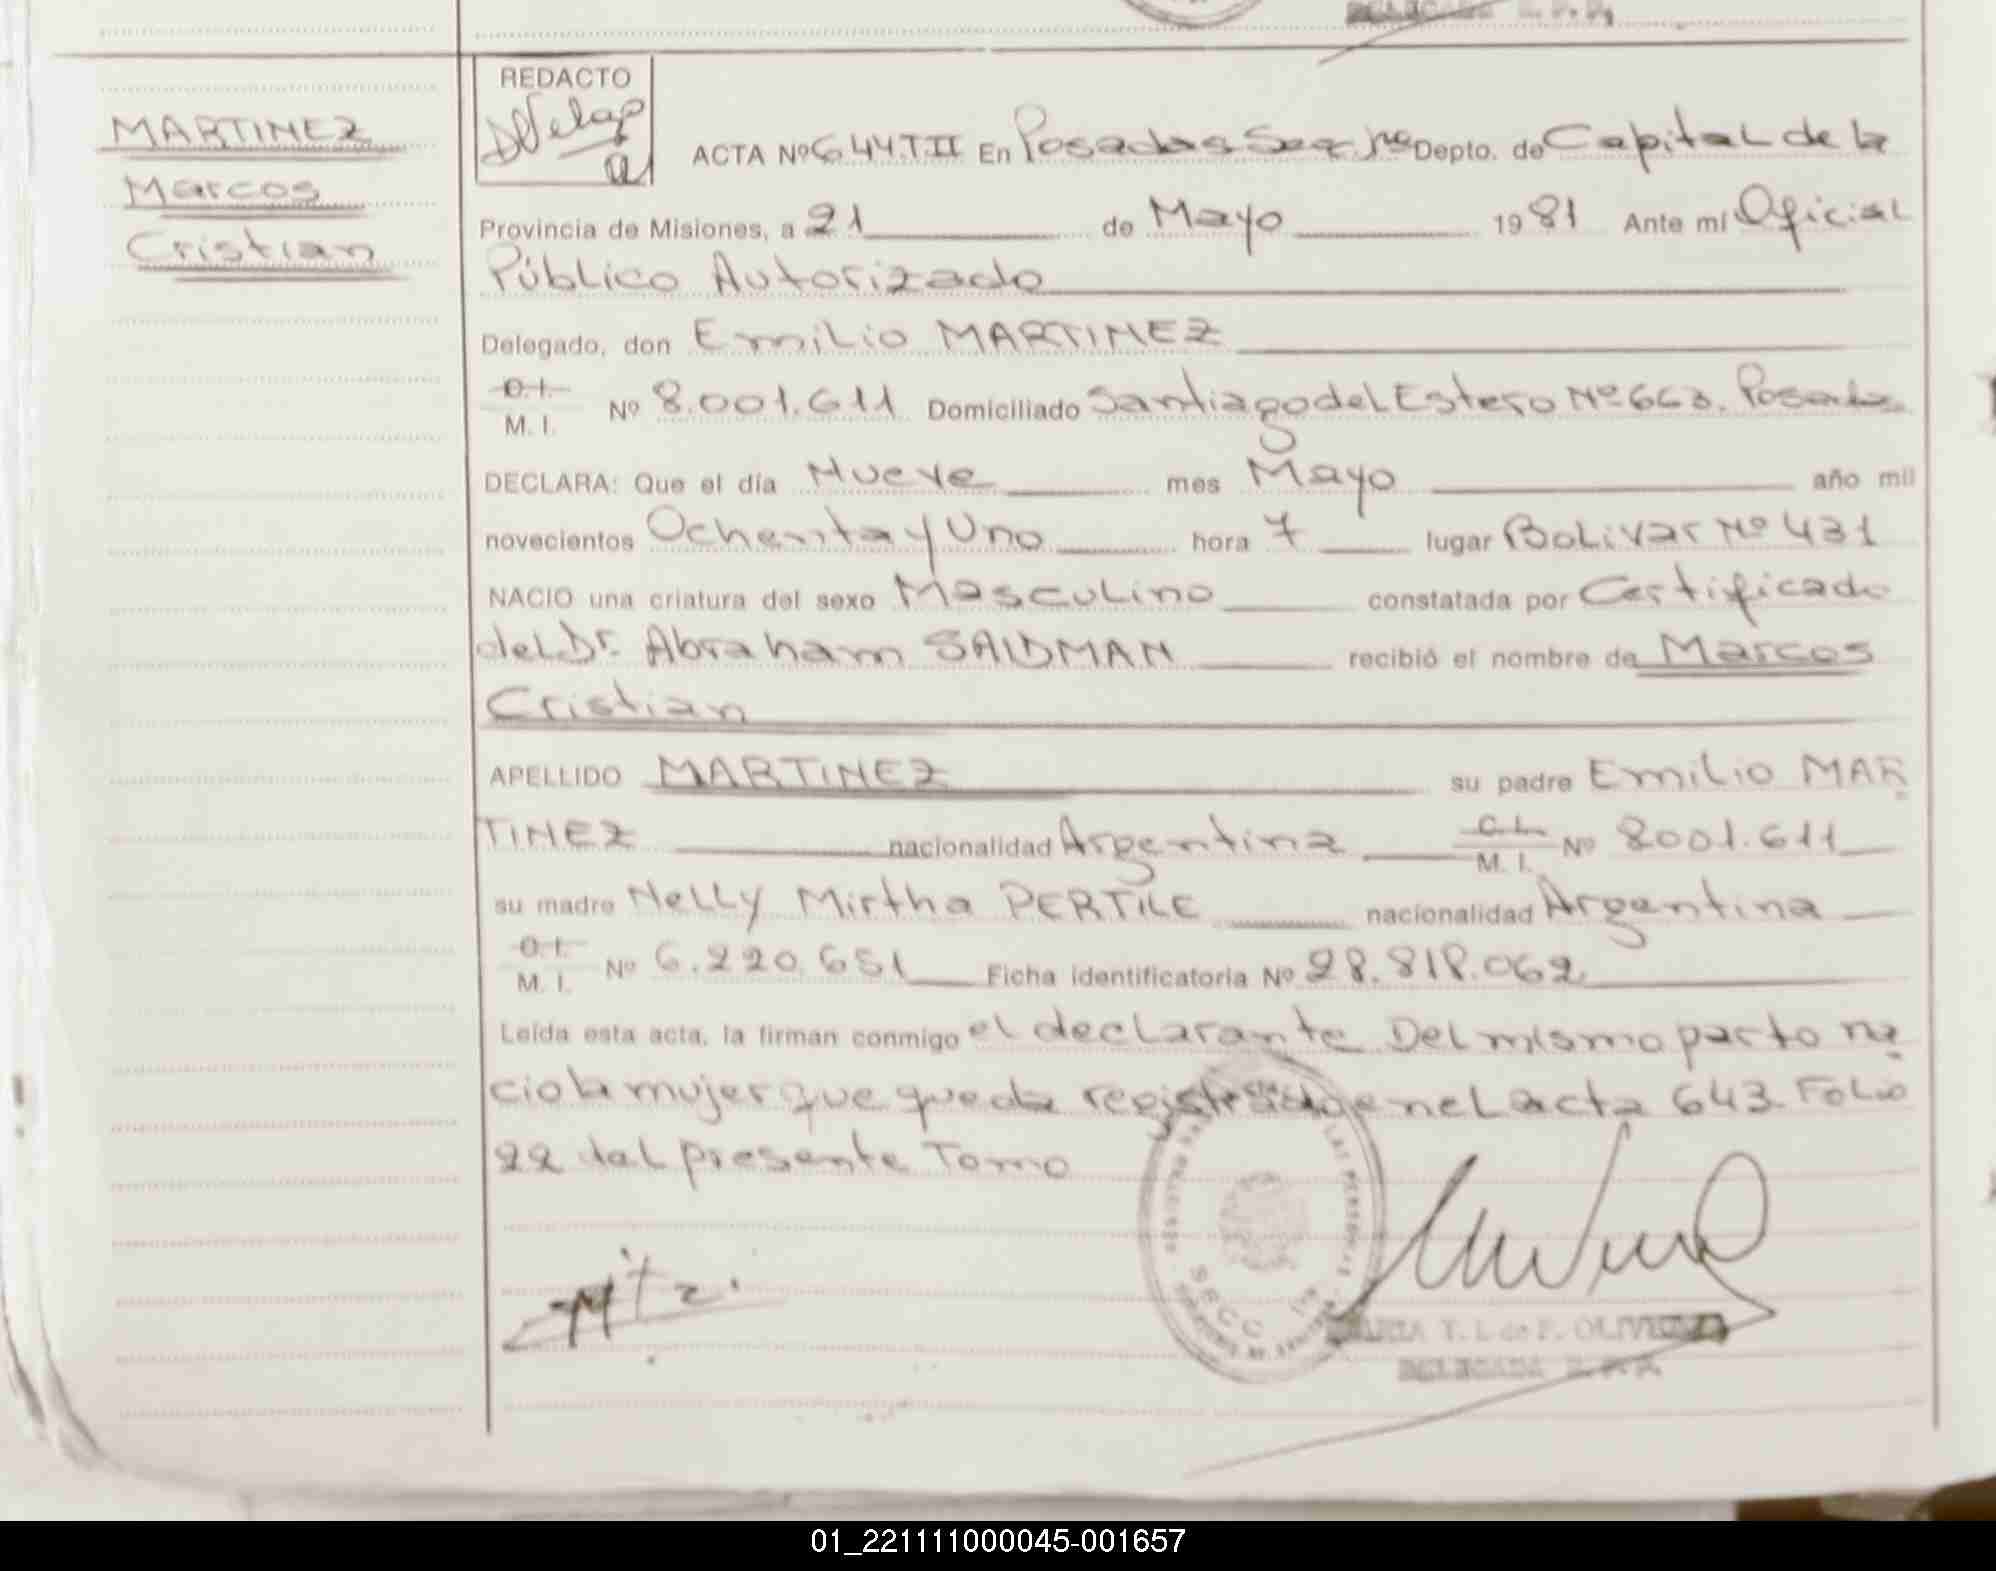 DELEGADA R. P. P.
REDACTO
MARTINEZ
Marcos
Cristian
ACTA Nº 644 T II En Posadas Secc. 1ra Depto. de Capital de la
Provincia de Misiones, a 21 de Mayo 1981 Ante mí Oficial
Público Autorizado
Delegado, don Emilio MARTINEZ
D. I.
M. I. Nº 8.001.611 Domiciliado Santiago del Estero Nº 663. Posadas
DECLARA: Que el día Nueve mes Mayo año mil
novecientos Ochenta y Uno hora 7 lugar Bolivar Nº 431
NACIO una criatura del sexo Masculino constatada por Certificado
del Dr. Abraham SAIDMAN recibió el nombre de Marcos
Cristian
APELLIDO MARTINEZ su padre Emilio MAR
TINEZ nacionalidad Argentina C. I.
M. I. Nº 8001.611
su madre Nelly Mirtha PERTILE nacionalidad Argentina
D. I.
M. I. Nº 6.220.651 Ficha identificatoria Nº 28.818.062
Leída esta acta, la firman conmigo el declarante Del mismo parto na
cio la mujer que queda registrada en el acta 643 Folio
22 del presente Tomo
SECC 1ra
MARIA T. L. de F. OLIVEIRA
DELEGADA R. P. P.
01_221111000045-001657